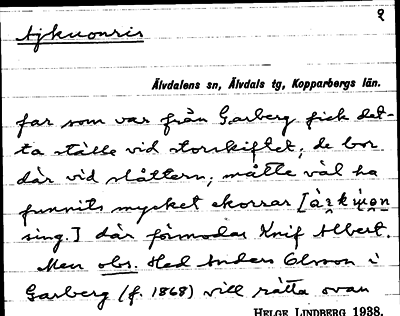 2
Ajkuonris
Älvdalens sn, Älvdals tg, Kopparbergs län.
far som var från Garberg fick det-
ta ställe vid storskiftet; de bor
där vid slåttern; måtte väl ha
funnits mycket ekorrar [
sing.] där förmodar Knif Albert.
Men obs. Hed Anders Olsson i
Garberg (f. 1868) vill rätta ovan
HELGE LINDBERG 1938.